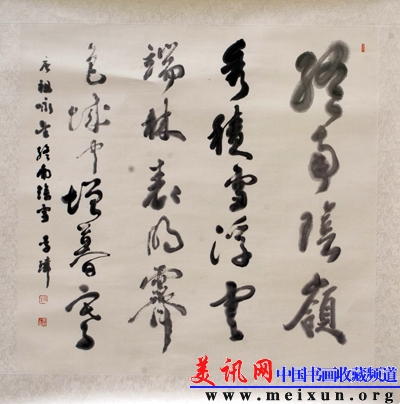 终南阴岭
秀积雪浮云
端林表明霁
色城中增暮寒
唐祖咏望终南残雪 高锋
美讯网 中国书画收藏频道
www.meixun.org